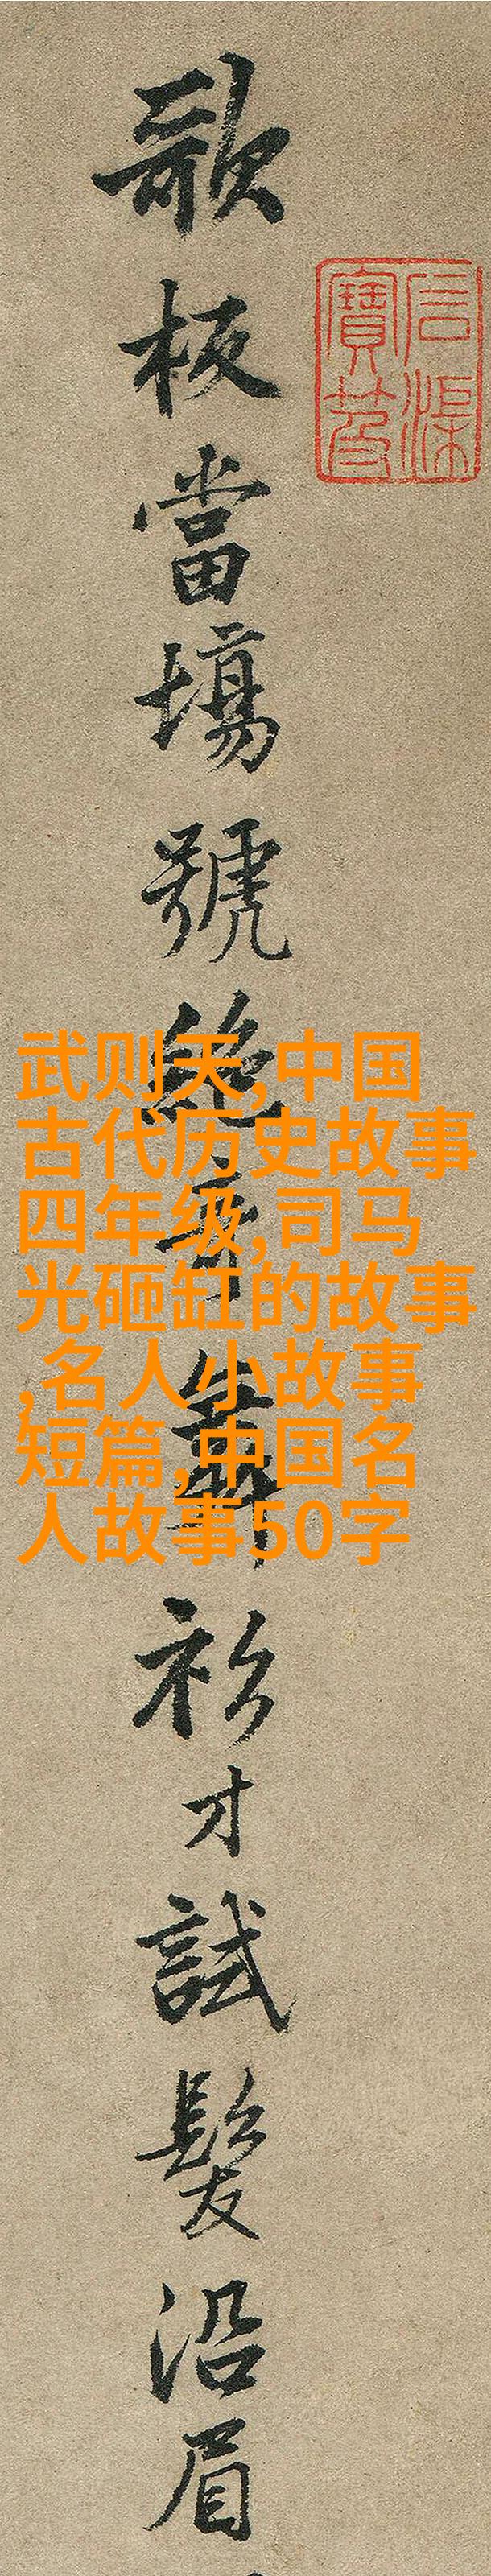 石渠
寶笈
歌板當場號絕奇舞衫才試髮沿眉
武则天,中国
古代历史故事
四年级,司马
光砸缸的故事
,名人小故事
短篇,中国名
人故事50字